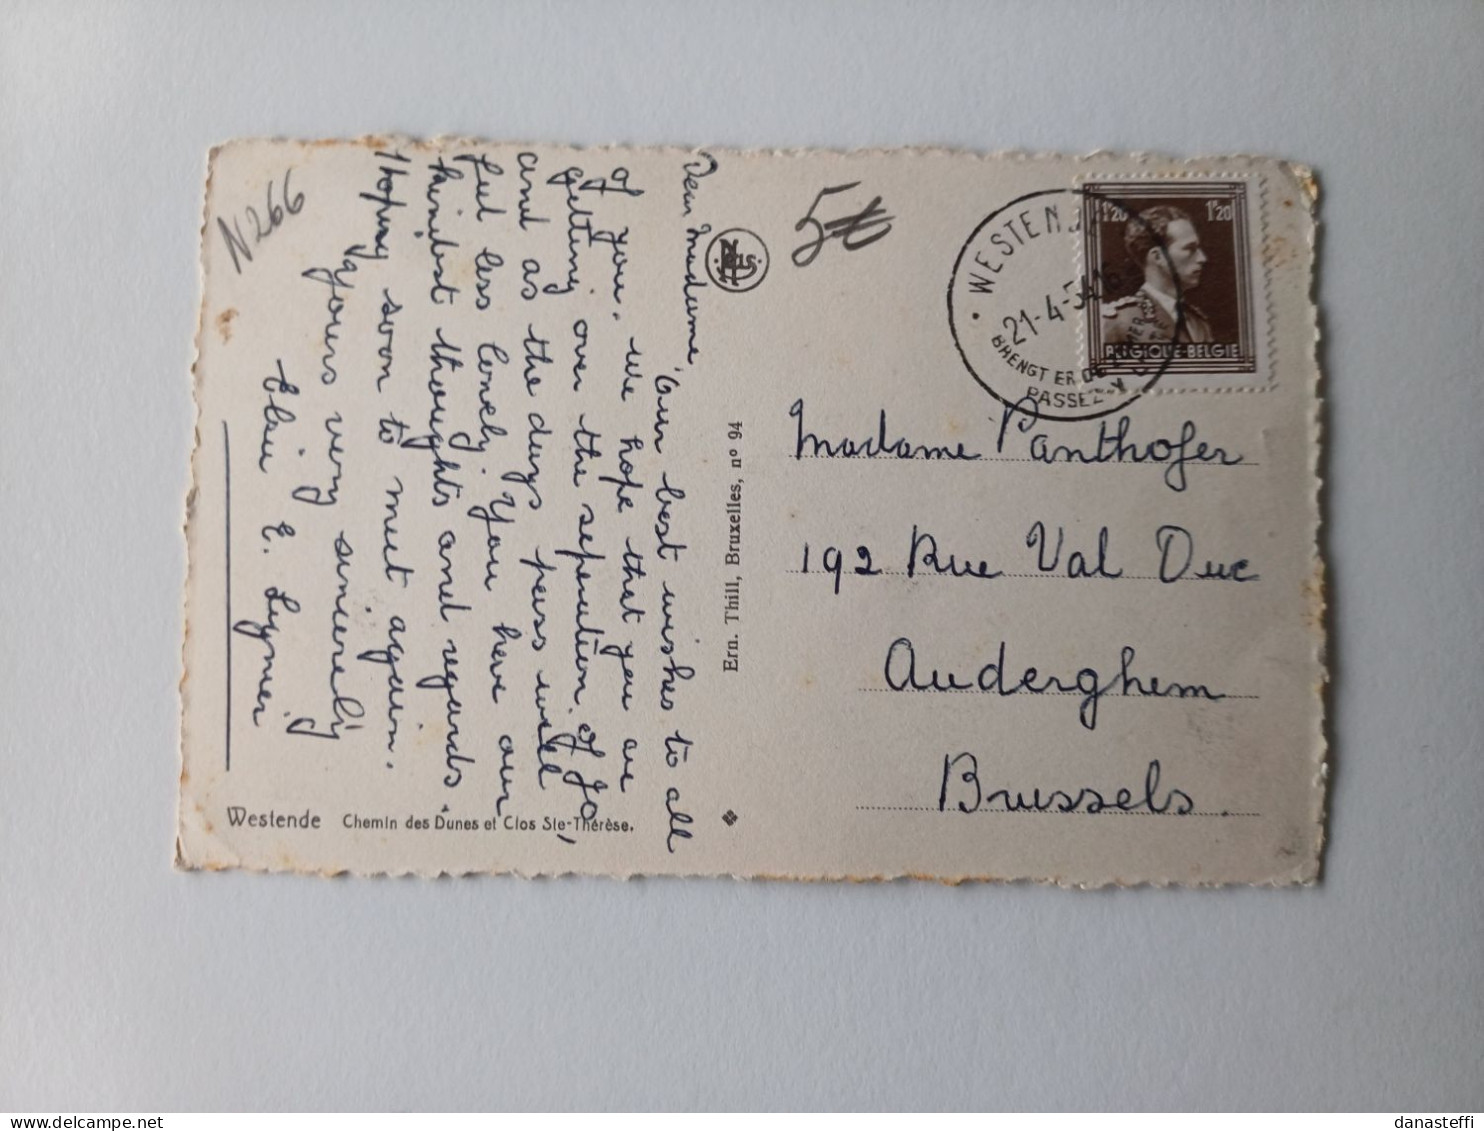 N 266
Dear Madame,
Our best wishes to all
of you. We hope that you are
getting over the seperation of Jo,
and as the days pass will
feel less lonely. You have our
kindest thoughts and regards.
Hoping soon to meet again.
Yours very sincerely
E. Lymer
Westende Chemin des Dunes et Clos Ste-Thérèse.
Ern. Thill, Bruxelles, nº 94
NELS
WESTENDE
21-4-54
BRENGT ER DE
PASSEZ-Y
1F20 1F20
BELGIQUE-BELGIE
Madame Panthofer
192 Rue Val Duc
Auderghem
Brussels.
delcampe.net
danasteffi